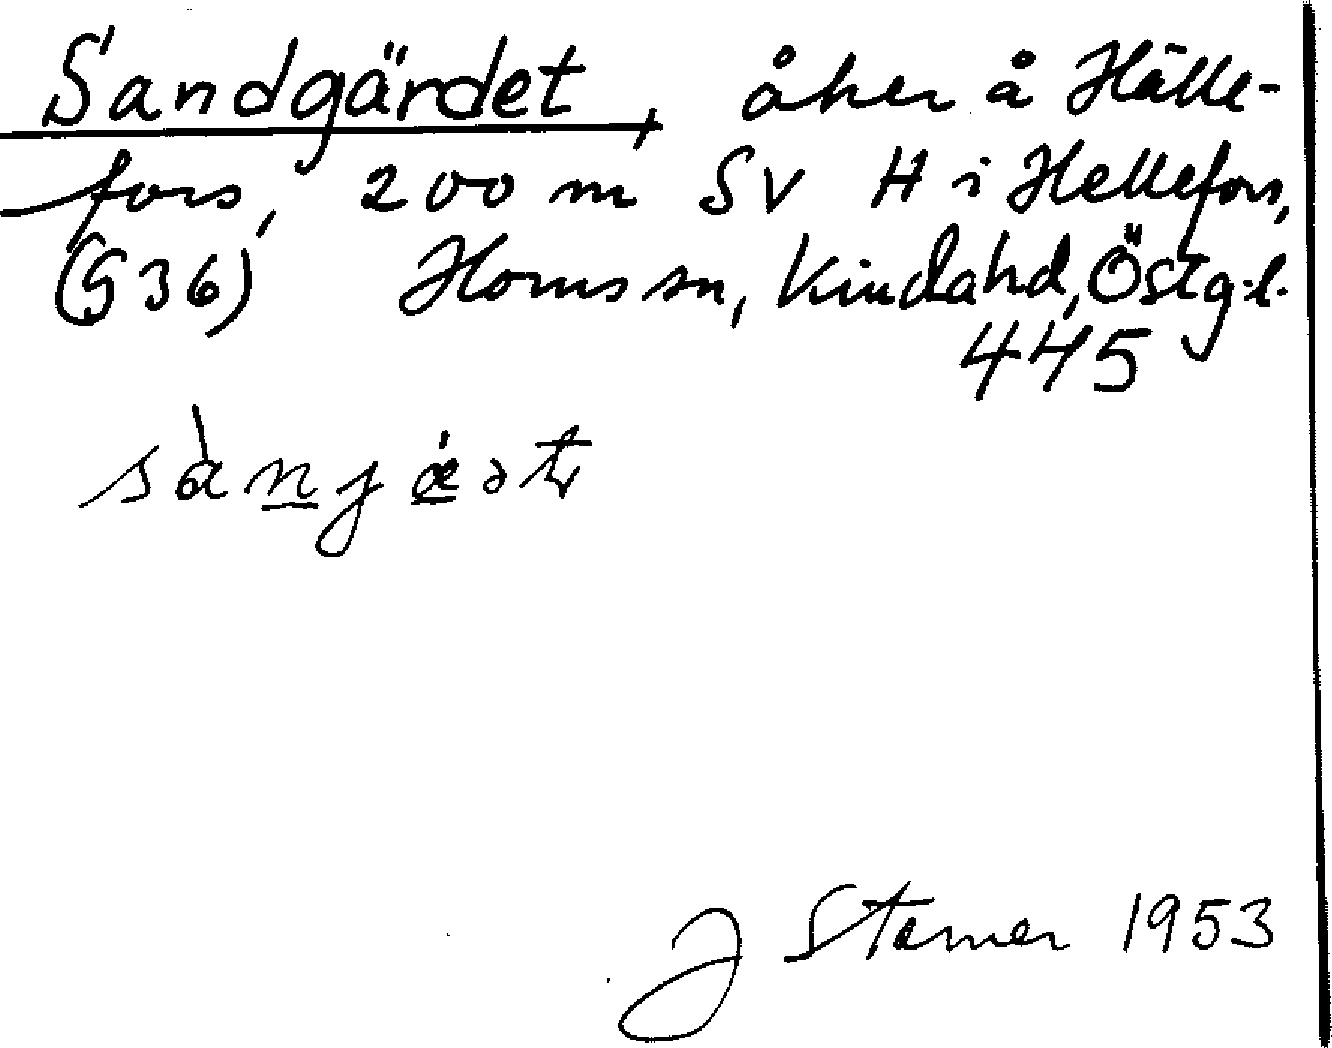 Sandgärdet, åker å Hälle-
fors, 200 m SV H i Hellefors,
(G 36) Horns sn, Kinda hd, Östg:l.
445
sàngæ̀ət
J Stamer 1953